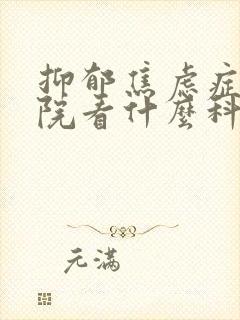 抑郁焦虑症
院看什麽科
元满